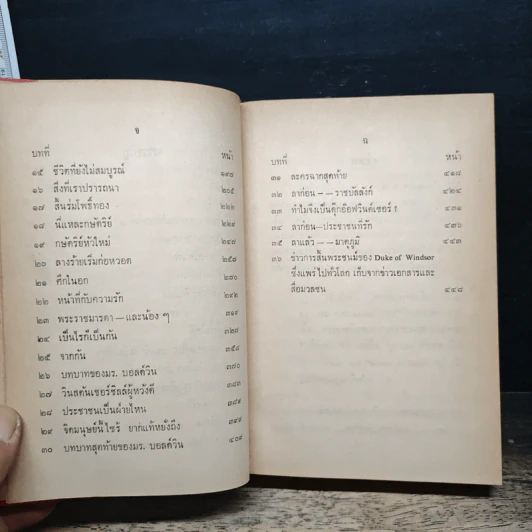 จ
บทที่ หน้า
๑๕ ชีวิตที่ยังไม่สมบูรณ์ ๑๙๘
๑๖ สิ่งที่เราปรารถนา ๒๐๕
๑๗ สิ้นร่มโพธิ์ทอง ๒๒๑
๑๘ นี่แหละกษัตริย์
๑๙ กษัตริย์หัวใหม่
๒๐ ลางร้ายเริ่มก่อหวอด ๒๕๘
๒๑ ศึกในอก ๒๗๐
๒๒ หน้าที่กับความรัก
๒๓ พระราชมารดา — และน้อง ๆ ๓๑๙
๒๔ เป็นไรก็เป็นกัน
๒๕ จากกัน ๓๕๘
๒๖ บทบาทของมร. บอลด์วิน
๒๗ วินสตันเชอร์ชิลล์ผู้หวังดี ๓๘๓
๒๘ ประชาชนเป็นฝ่ายไหน
๒๙ จิตมนุษย์นี้ไซร้ ยากแท้หยั่งถึง
๓๐ บทบาทสุดท้ายของมร. บอลด์วิน ๔๐๙
ฉ
บทที่ หน้า
๓๑ ละครฉากสุดท้าย ๔๑๘
๓๒ ลาก่อน — — ราชบัลลังก์ ๔๒๔
๓๓ ทำไมจึงเป็นดุ๊กอ๊อฟวินด์เซอร์ ? ๔๓๑
๓๔ ลาก่อน—ประชาชนที่รัก ๔๓๖
๓๕ ลาแล้ว — — มาตุภูมิ ๔๔๓
๓๖ ข่าวการสิ้นพระชนม์ของ Duke of Windsor
ซึ่งแพร่ไปทั่วโลก เก็บจากข่าวเอกสารและ
สื่อมวลชน ๔๔๘